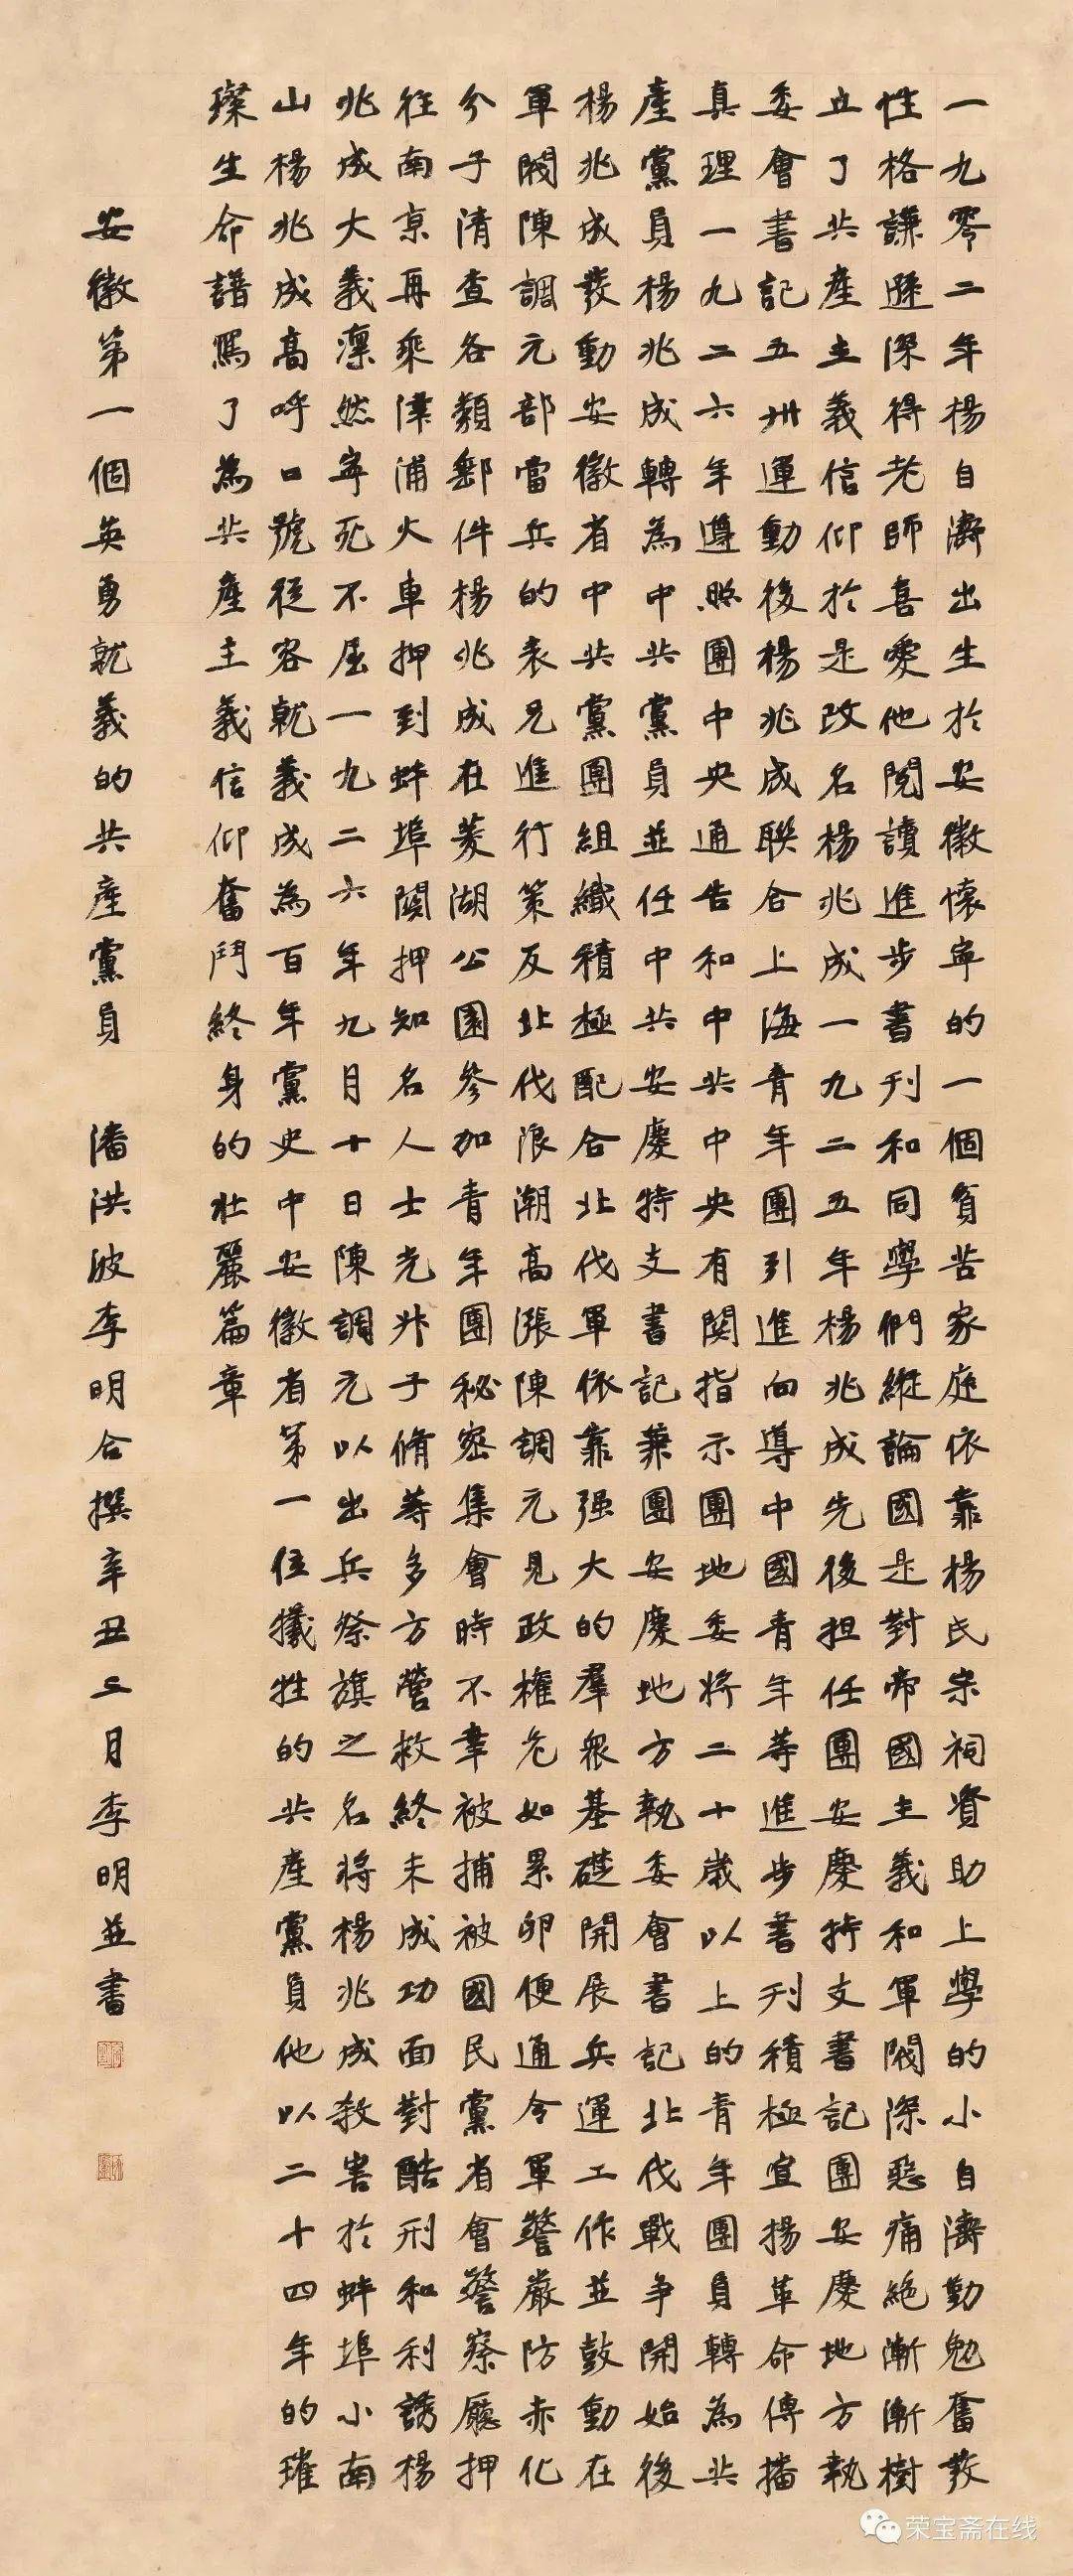 一九零二年楊自濟出生於安徽懷寧的一個貧苦家庭依靠楊氏宗祠資助上學的小自濟勤勉奮發
性格謙遜深得老師喜愛他閱讀進步書刊和同學們縱論國是對帝國主義和軍閥深惡痛絕漸漸樹
立了共產主義信仰於是改名楊兆成一九二五年楊兆成先後担任團安慶特支書記團安慶地方執
委會書記五卅運動後楊兆成聯合上海青年團引進向導中國青年等進步書刊積極宣揚革命傳播
真理一九二六年遵照團中央通告和中共中央有関指示團地委將二十歲以上的青年團員轉為共
產黨員楊兆成轉為中共黨員並任中共安慶特支書記兼團安慶地方執委會書記北伐戰争開始後
楊兆成發動安徽省中共黨團組織積極配合北伐軍依靠强大的羣衆基礎開展兵運工作並鼓動在
軍閥陳調元部當兵的表兄進行策反北伐浪潮高漲陳調元見政權危如累卵便通令軍警嚴防赤化
分子清查各類郵件楊兆成在菱湖公園參加青年團秘密集會時不幸被捕被國民黨省會警察廳押
往南京再乘津浦火車押到蚌埠関押知名人士光昇子脩等多方營救終未成功面對酷刑和利誘楊
兆成大義凛然寧死不屈一九二六年九月十日陳調元以出兵祭旗之名將楊兆成殺害於蚌埠小南
山楊兆成高呼口號從容就義成為百年黨史中安徽省第一位犧牲的共產黨員他以二十四年的璀
璨生命譜寫了為共產主義信仰奮鬥終身的壯麗篇章
安徽第一個英勇就義的共產黨員 潘洪波李明合撰辛丑二月李明並書
荣宝斋在线